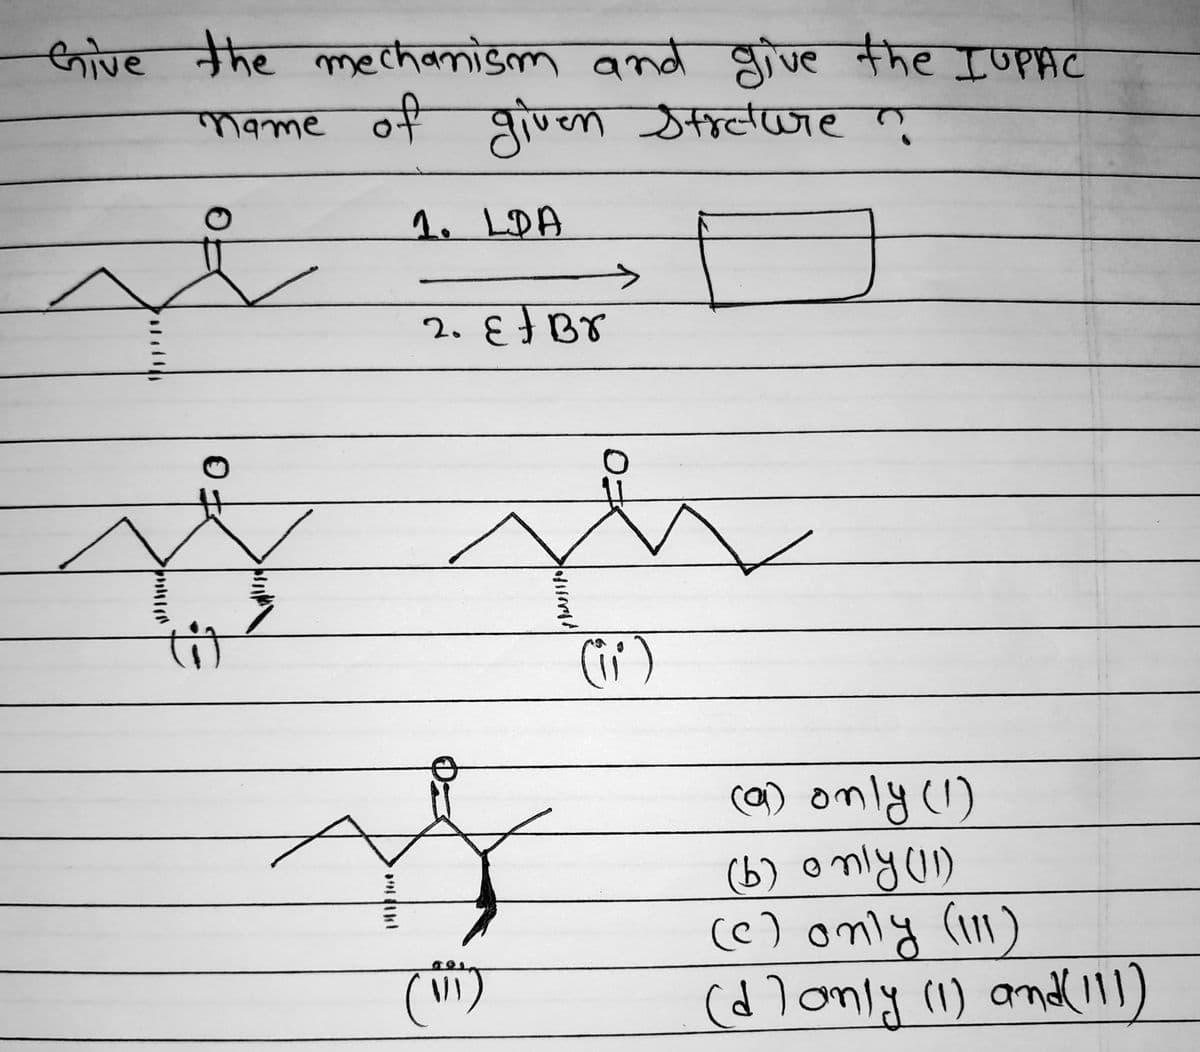 Give the mechanism and give the IUPAC
name of given Strcture ?
O
1. LDA
2. EtBr
O
O
(i)
(ii)
O
(iii)
(a) only (I)
(b) only (II)
(c) only (III)
(d) only (I) and (III)